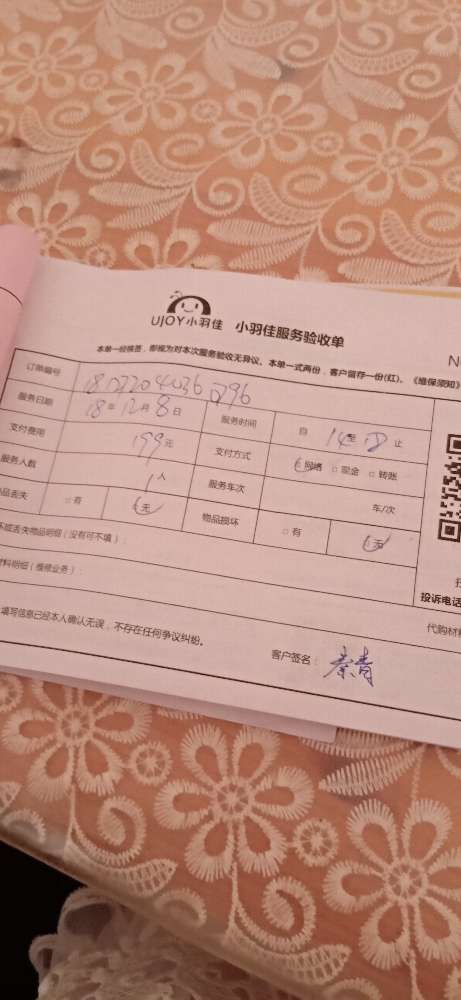 UJOY小羽佳 小羽佳服务验收单
本单一经核签，即视为对本次服务验收无异议。本单一式两份，客户留存一份(红)。《维保须知》
订单编号
服务日期 18年12月8日 服务时间 自 14至18止
支付费用 199元 支付方式 网络 □现金 □转账
服务人数 1人 服务车次 车/次
品丢失 □有 无 物品损坏 □有 无
不或丢失物品明细（没有可不填）：
材料明细（维修业务）： 投诉电话
代购材料
填写信息已经本人确认无误，不存在任何争议纠纷。
客户签名：秦青